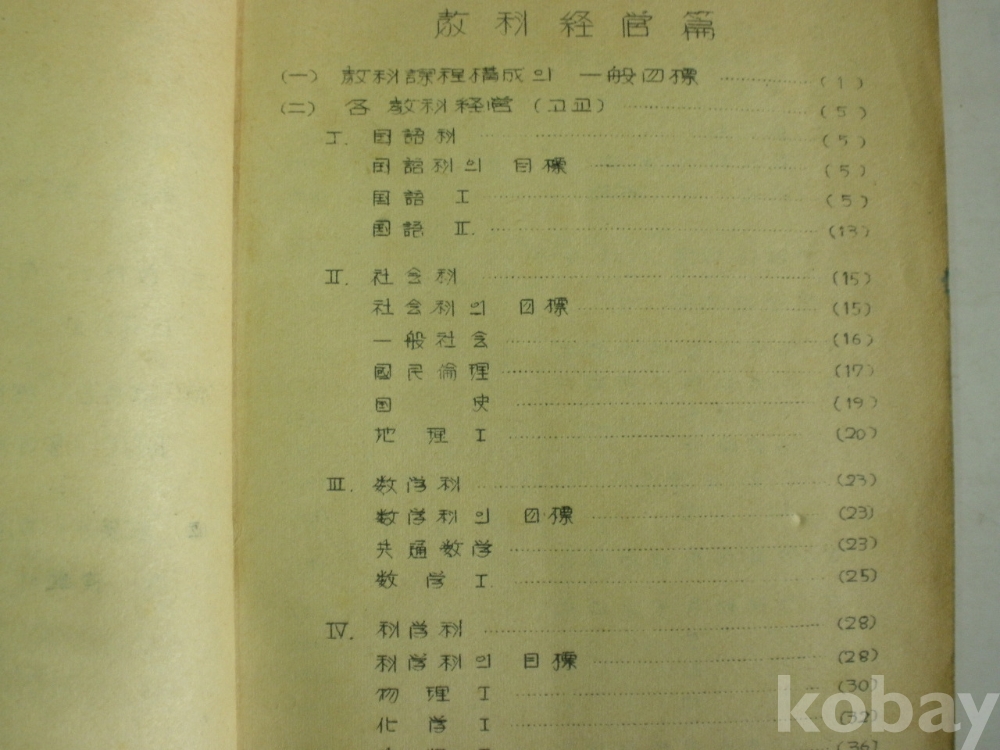 敎科経営篇
(一) 敎科課程構成의 一般目標 (1)
(二) 各 敎科経営 (고교) (5)
I. 国語科 (5)
国語科의 目標 (5)
国語 I (5)
国語 II. (13)
II. 社会科 (15)
社会科의 目標 (15)
一般社会 (16)
國民倫理 (17)
国 史 (19)
地理 I (20)
III. 数学科 (23)
数学科의 目標 (23)
共通数学 (23)
数学 I. (25)
IV. 科学科 (28)
科学科의 目標 (28)
物理 I (30)
化学 I (32)
(36)
kobay